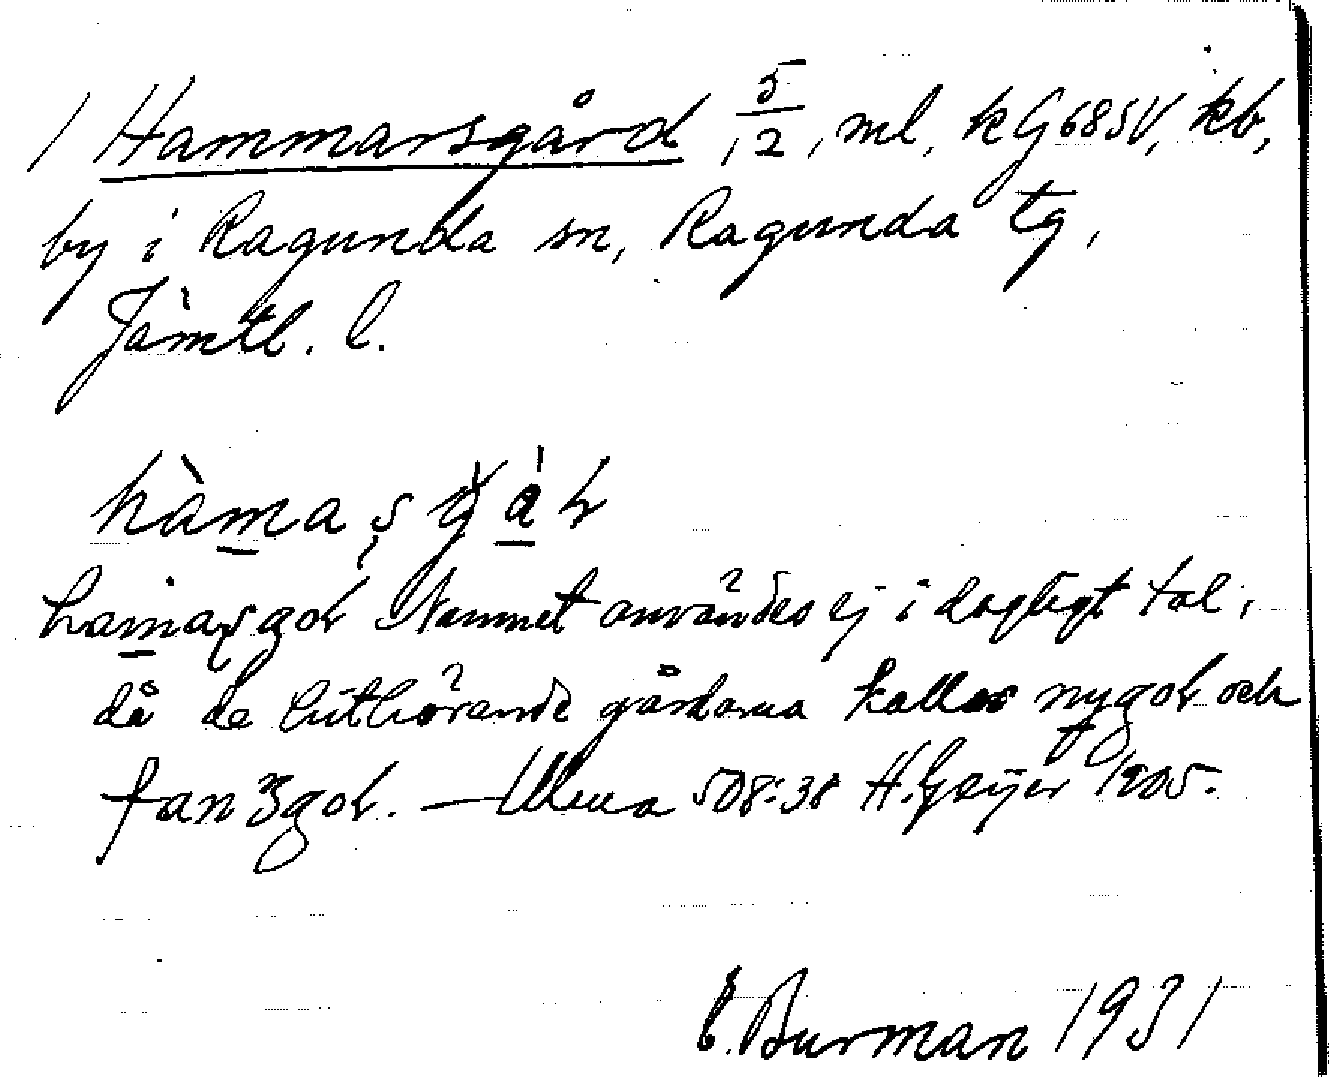 1 Hammarsgård 5/12, ml, kG68SV, kb,
by i Ragunda sn, Ragunda tg,
Jämtl. l.
hàmaʂgàɽ
hamaʂgoɽ Namnet användes ej i dagligt tal,
då de hithörande gårdarna kallas nygoɽ och
fanʒgoɽ. — Ulma 508:38 H. Geijer 1905.
E. Burman 1931